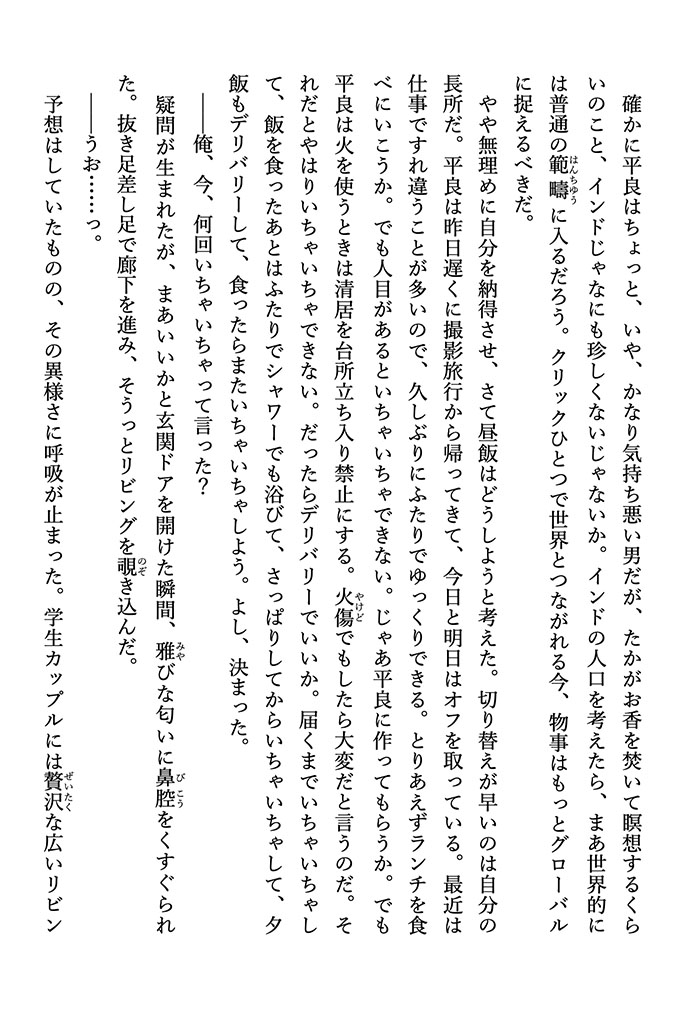 確かに平良はちょっと、いや、かなり気持ち悪い男だが、たかがお香を焚いて瞑想するくら
いのこと、インドじゃなにも珍しくないじゃないか。インドの人口を考えたら、まあ世界的に
は普通の範疇はんちゆうに入るだろう。クリックひとつで世界とつながれる今、物事はもっとグローバル
に捉えるべきだ。
　やや無理めに自分を納得させ、さて昼飯はどうしようと考えた。切り替えが早いのは自分の
長所だ。平良は昨日遅くに撮影旅行から帰ってきて、今日と明日はオフを取っている。最近は
仕事ですれ違うことが多いので、久しぶりにふたりでゆっくりできる。とりあえずランチを食
べにいこうか。でも人目があるといちゃいちゃできない。じゃあ平良に作ってもらうか。でも
平良は火を使うときは清居を台所立ち入り禁止にする。火傷やけどでもしたら大変だと言うのだ。そ
れだとやはりいちゃいちゃできない。だったらデリバリーでいいか。届くまでいちゃいちゃし
て、飯を食ったあとはふたりでシャワーでも浴びて、さっぱりしてからいちゃいちゃして、夕
飯もデリバリーして、食ったらまたいちゃいちゃしよう。よし、決まった。
　――俺、今、何回いちゃいちゃって言った？
　疑問が生まれたが、まあいいかと玄関ドアを開けた瞬間、雅みやびな匂いに鼻腔びこうをくすぐられ
た。抜き足差し足で廊下を進み、そうっとリビングを覗のぞき込んだ。
　――うお……っ。
　予想はしていたものの、その異様さに呼吸が止まった。学生カップルには贅沢ぜいたくな広いリビン